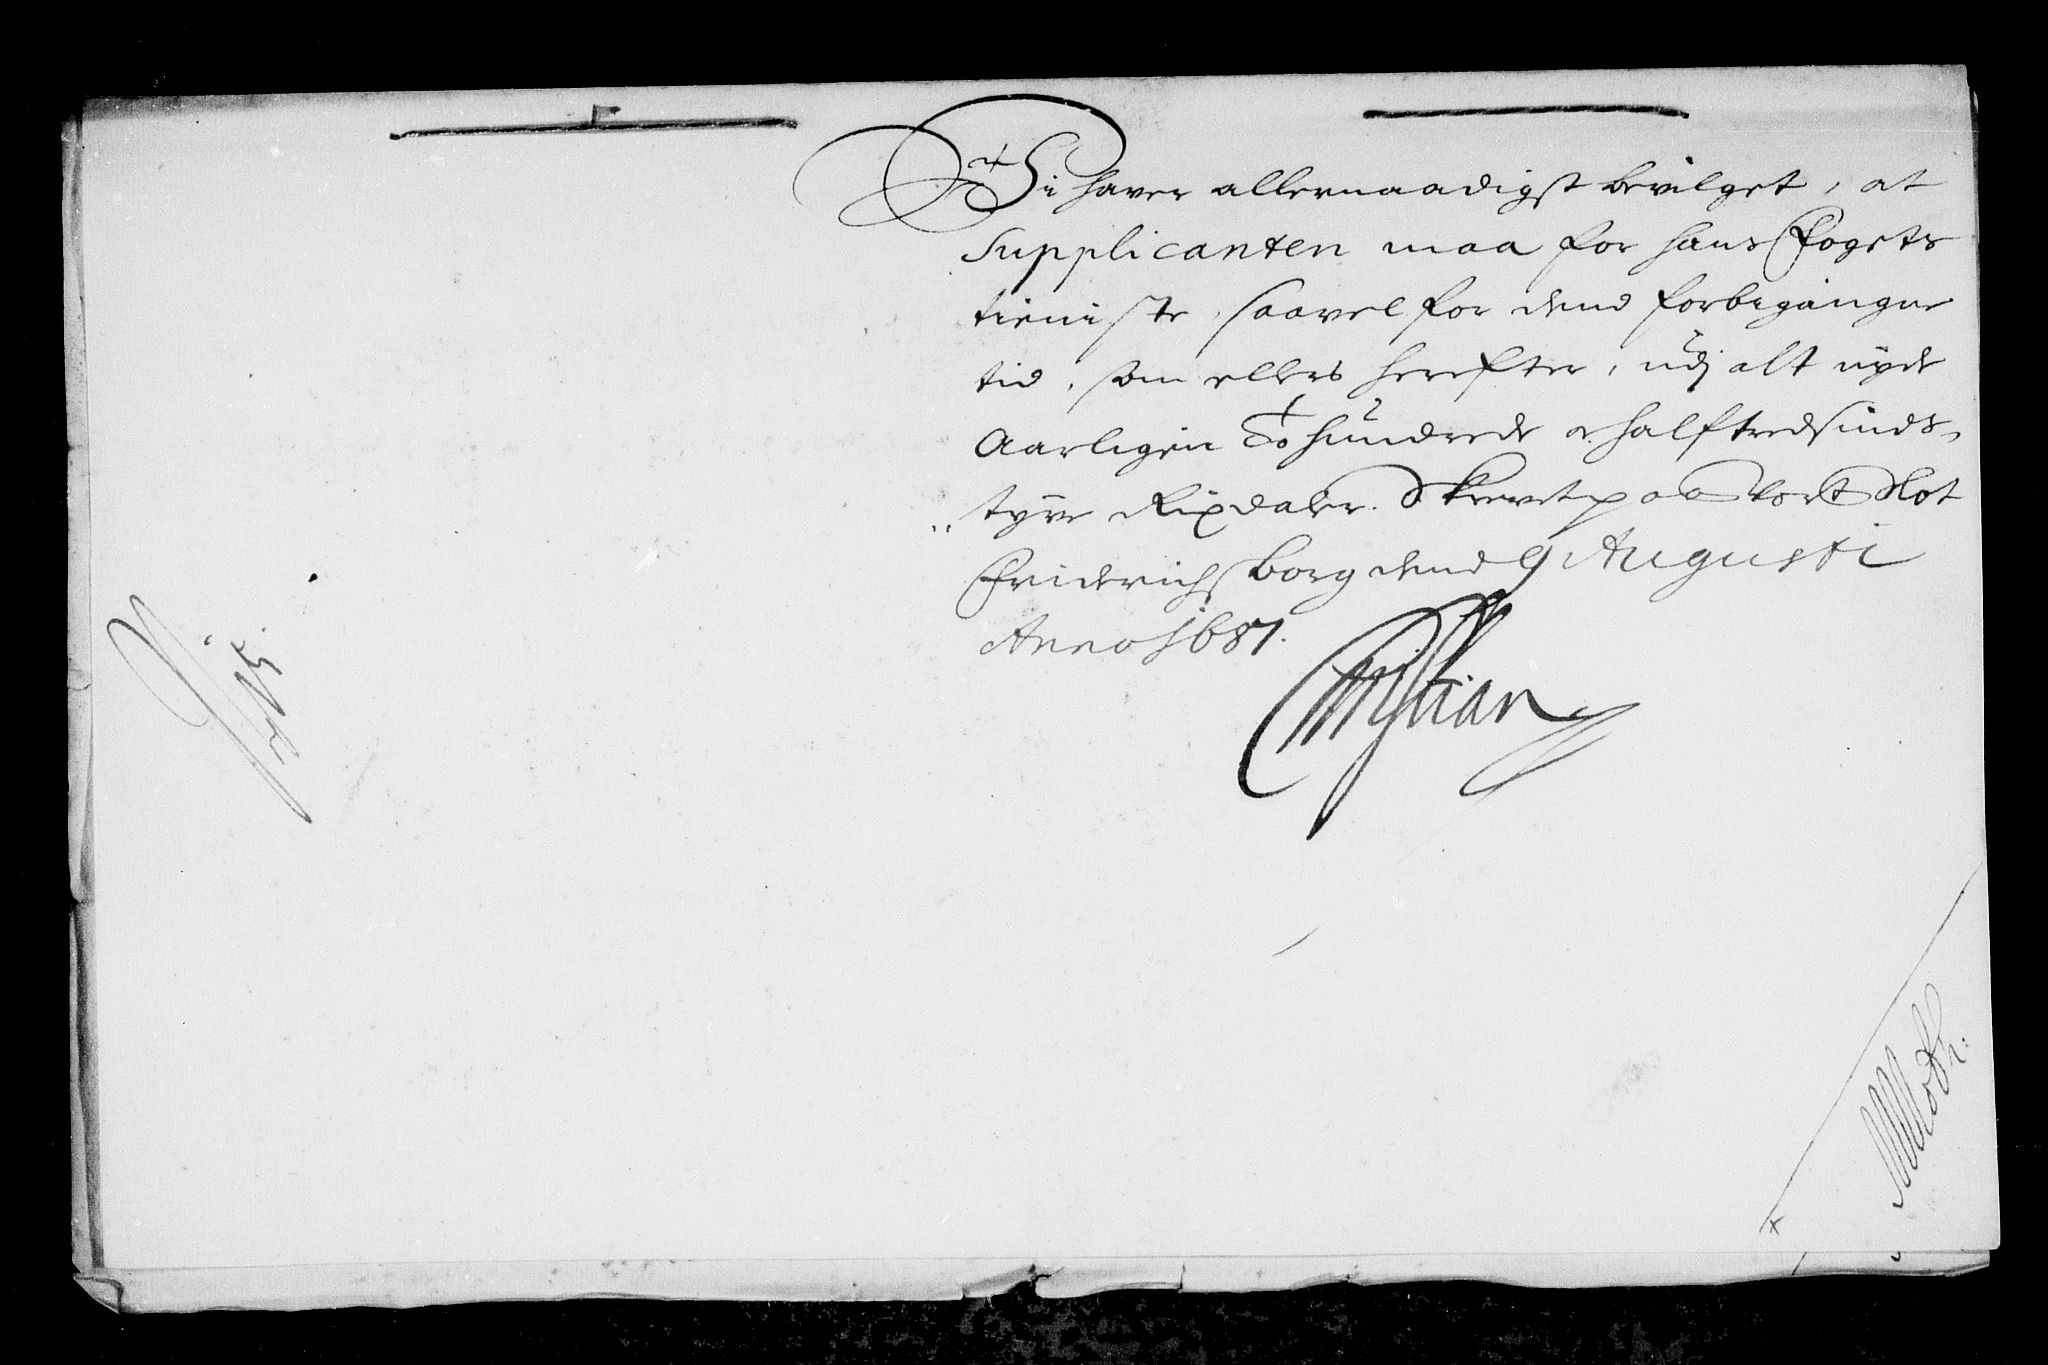 Vi hafver allernaadigst bevilget, at
Supplicanten maa for hans Fogets
tieniste, saavel for dend forbigangne
tid, som ellers herefter, udj alt nyde
Aarligen To hundrede oc halftredsinds-
tyve Rixdaler. Skrevet paa vort Slot
Friderichsborg dend 9 Augusti
Anno 1687.
Christian
MMoth.